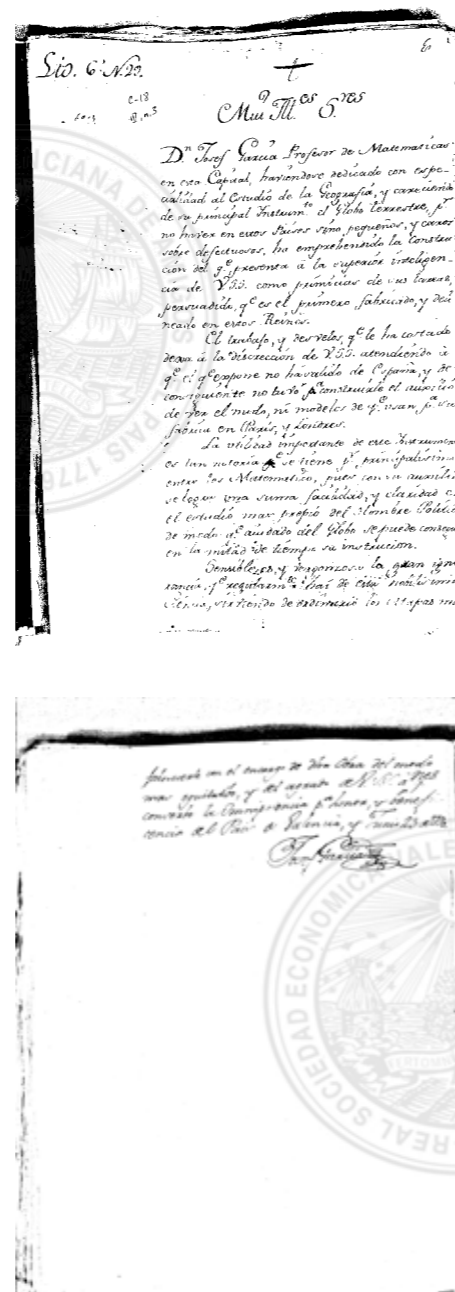 Lio. 6º N. 29.
C-18
n. 3
Mui Iltes Sres
Dn. Josef Garcia Profesor de Matematicas
en esta Capital, haviendose dedicado con espe-
cialidad al Estudio de la Geografia, y careciendo
de su principal Instrumto el Globo terrestre, pr
no haver en estos Paises sino pequeños, y
sobre defectuosos, ha emprehendido la Construc
cion del qe presenta à la superior inteligen-
cia de V.SS. como primicias de sus tareas,
persuadido, qe es el primero, fabricado, y deli
neado en estos Reinos.
El trabajo, y desvelos, qe le ha costado
dexa à la discrecion de V.SS. atendiendo à
qe el qe expone no ha salido de España, y de
consiguiente no tuvo pa construirle el auxilio
de ver el modo, ni modelos de qe usan pa su
fabrica en Paris, y Londres.
La utilidad importante de este Instrumen
es tan notoria qe se tiene pr principalisimo
entre los Matematicos, pues con su auxilio
se logra una suma facilidad, y claridad e
el estudio mas propio del Hombre Politic
de modo qe aiudado del Globo se puede conseg
en la mitad de tiempo su instruccion.
Sensible es, y vergonzosa la gran igno
rancia, qe regularmte hai de esta nobilisima
Ciencia, sirviendo de ordinario los Mapas
en el encargo de otra Obra del modo
mas equitativo, y del agrado de V.SS. à qes
convierte la Omnipotencia pa honra, y benefi
cencia del Pais de Valencia, y Junio 23 de
Josef Garcia
REAL SOCIEDAD ECONOMIC
1776